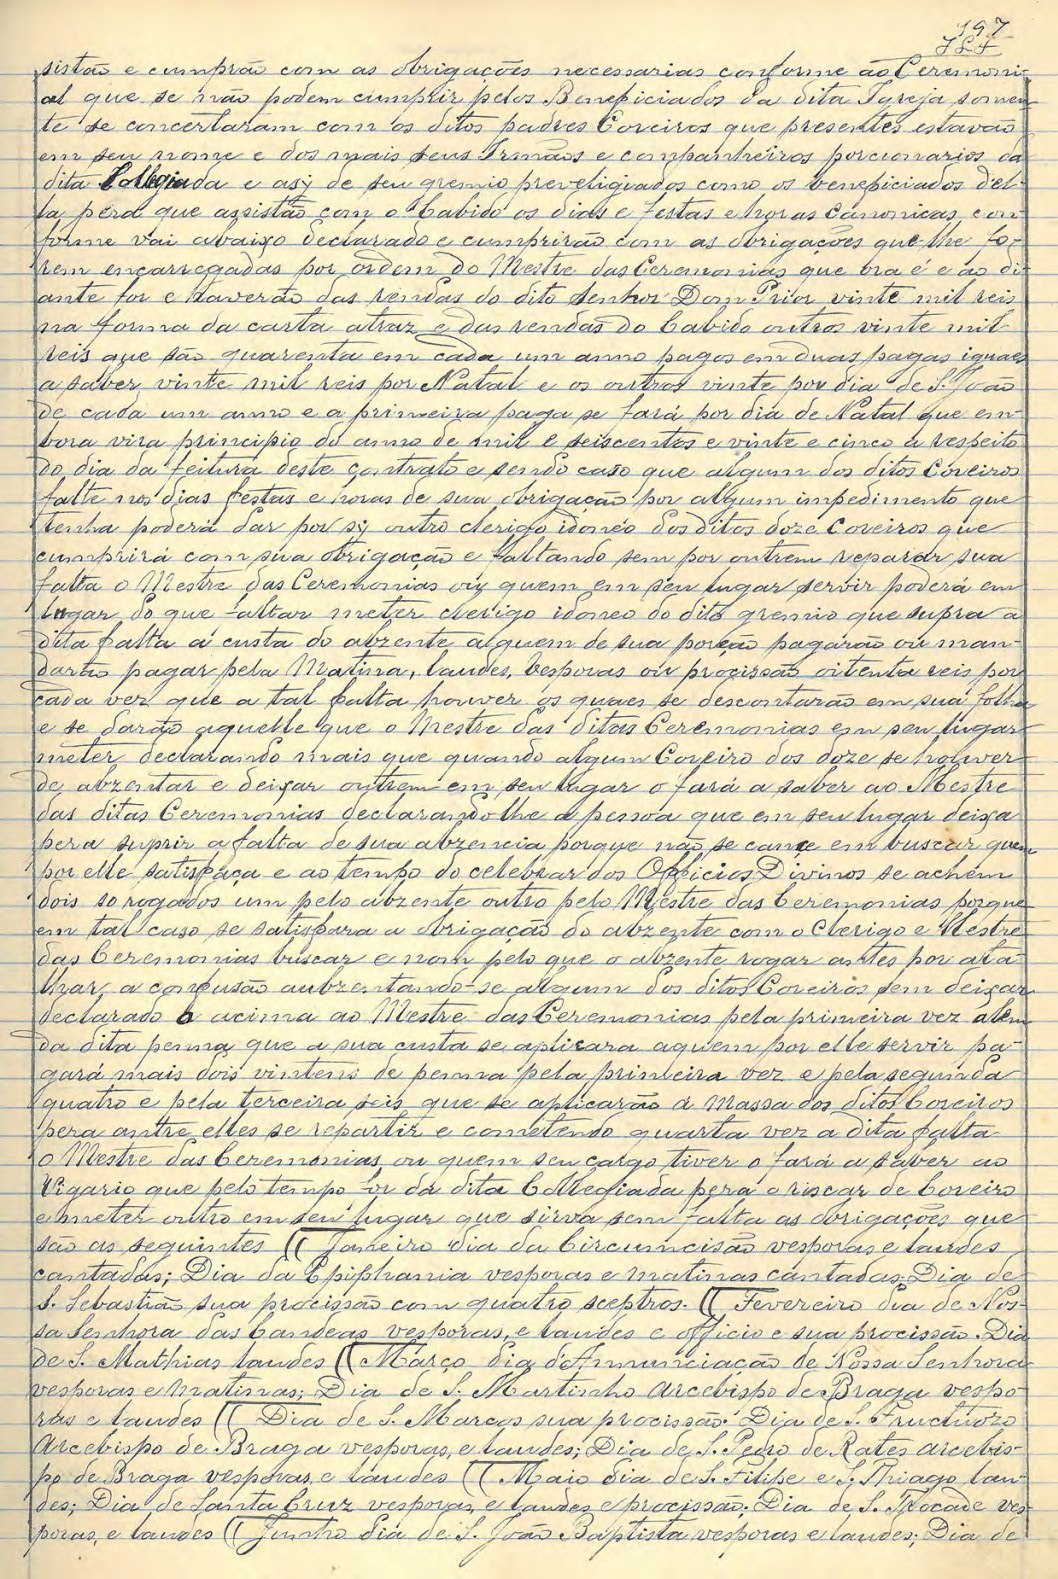 197
sistão e cumprão com as obrigações necessarias conforme ao Ceremoni-
al que se não podem cumprir pelos Beneficiados da dita Igreja somen-
te se concertaram com os ditos padres Coreiros que presentes estavão
em seu nome e dos mais seus Irmãos e companheiros porcionarios da
dita Collegiada e asy de seu gremio previligiados como os beneficiados del-
la, pera que assistão com o Cabido os dias e festas e horas Canonicas con-
forme vai abaixo declarado e cumprirão com as obrigações que lhe fo-
rem encarregadas por ordem do Mestre das Ceremonias que ora é e ao di-
ante for e haverão das rendas do dito Senhor Dom Prior vinte mil reis
na forma da carta atraz e das rendas do Cabido outros vinte mil
reis que são quarenta em cada um anno pagos em duas pagas iguaes
a saber vinte mil reis por Natal e os outros vinte por dia de S. João
de cada um anno e a primeira paga se fará por dia de Natal que em-
bora vira principio do anno de mil e seiscentos e vinte e cinco a respeito
do dia da feitura deste contrato e sendo caso que algum dos ditos Coreiros
falte nos dias festas e horas de sua obrigação por algum impedimento que
tenha poderá dar por sy outro clerigo idoneo dos ditos doze Coreiros que
cumprirá com sua obrigação e faltando sem por outrem reparar sua
falta o Mestre das Ceremonias ou quem em seu lugar servir poderá em
lugar do que faltar meter clerigo idoneo do dito gremio que supra a
dita falta á custa do abzente aquem de sua porção pagarão ou man-
darão pagar pela Matina, laudes, vesporas ou procissão oitenta reis por
cada vez que a tal falta houver os quaes se descontarão em sua folha
e se darão aquelle que o Mestre das ditas Ceremonias em seu lugar
meter, declarando mais que quando algum Coreiro dos doze se houver
de abzentar e deixar outrem em seu lugar o fará a saber ao Mestre
das ditas Ceremonias declarandolhe a pessoa que em seu lugar deixa
pera suprir a falta de sua abzencia porque não se cance em buscar quem
por elle satisfaça e ao tempo do celebrar dos Officios Divinos se achem
dois sorogados um pelo abzente outro pelo Mestre das Ceremonias porque
em tal caso se satisfara a obrigação do abzente com o Clerigo e Mestre
das Ceremonias buscar e nom pelo que o abzente rogar antes por ata-
lhar a confusão aubzentando-se algum dos ditos Coreiros sem deixar
declarado o acima ao Mestre das Ceremonias pela primeira vez alem
da dita penna que a sua custa se aplicara aquem por elle servir pa-
gará mais dois vintens de penna pela primeira vez e pela segunda
quatro e pela terceira seis que se aplicarão á Massa dos ditos Coreiros
pera antre elles se repartir e cometendo quarta vez a dita falta
o Mestre das Ceremonias ou quem seu cargo tiver o fará a saber ao
Vigario que pelo tempo for da dita Collegiada pera o riscar de Coreiro
e meter outro em seu lugar que sirva sem falta as obrigações que
são as seguintes (( Janeiro dia da Circumcisão vesporas e laudes
cantadas; Dia da Epiphania vesporas e matinas cantadas. Dia de
S. Sebastião sua procissão com quatro sceptros. (( Fevereiro dia de Nos-
sa Senhora das Candeas vesporas, e laudes e officio e sua procissão. Dia
de S. Mathias laudes (( Março dia d'Annunciação de Nossa Senhora
vesporas e Matinas; Dia de S. Martinho Arcebispo de Braga vespo-
ras e laudes (( Dia de S. Marcos sua procissão. Dia de S. Fructuozo
Arcebispo de Braga vesporas, e laudes; Dia de S. Pedro de Rates arcebis-
po de Braga vesporas, e laudes (( Maio dia de S. Filipe e S. Thiago lau-
des; Dia de Santa Cruz vesporas, e laudes e procissão; Dia de S. Trocade ves-
poras, e laudes (( Junho dia de S. João Baptista vesporas e laudes; Dia de